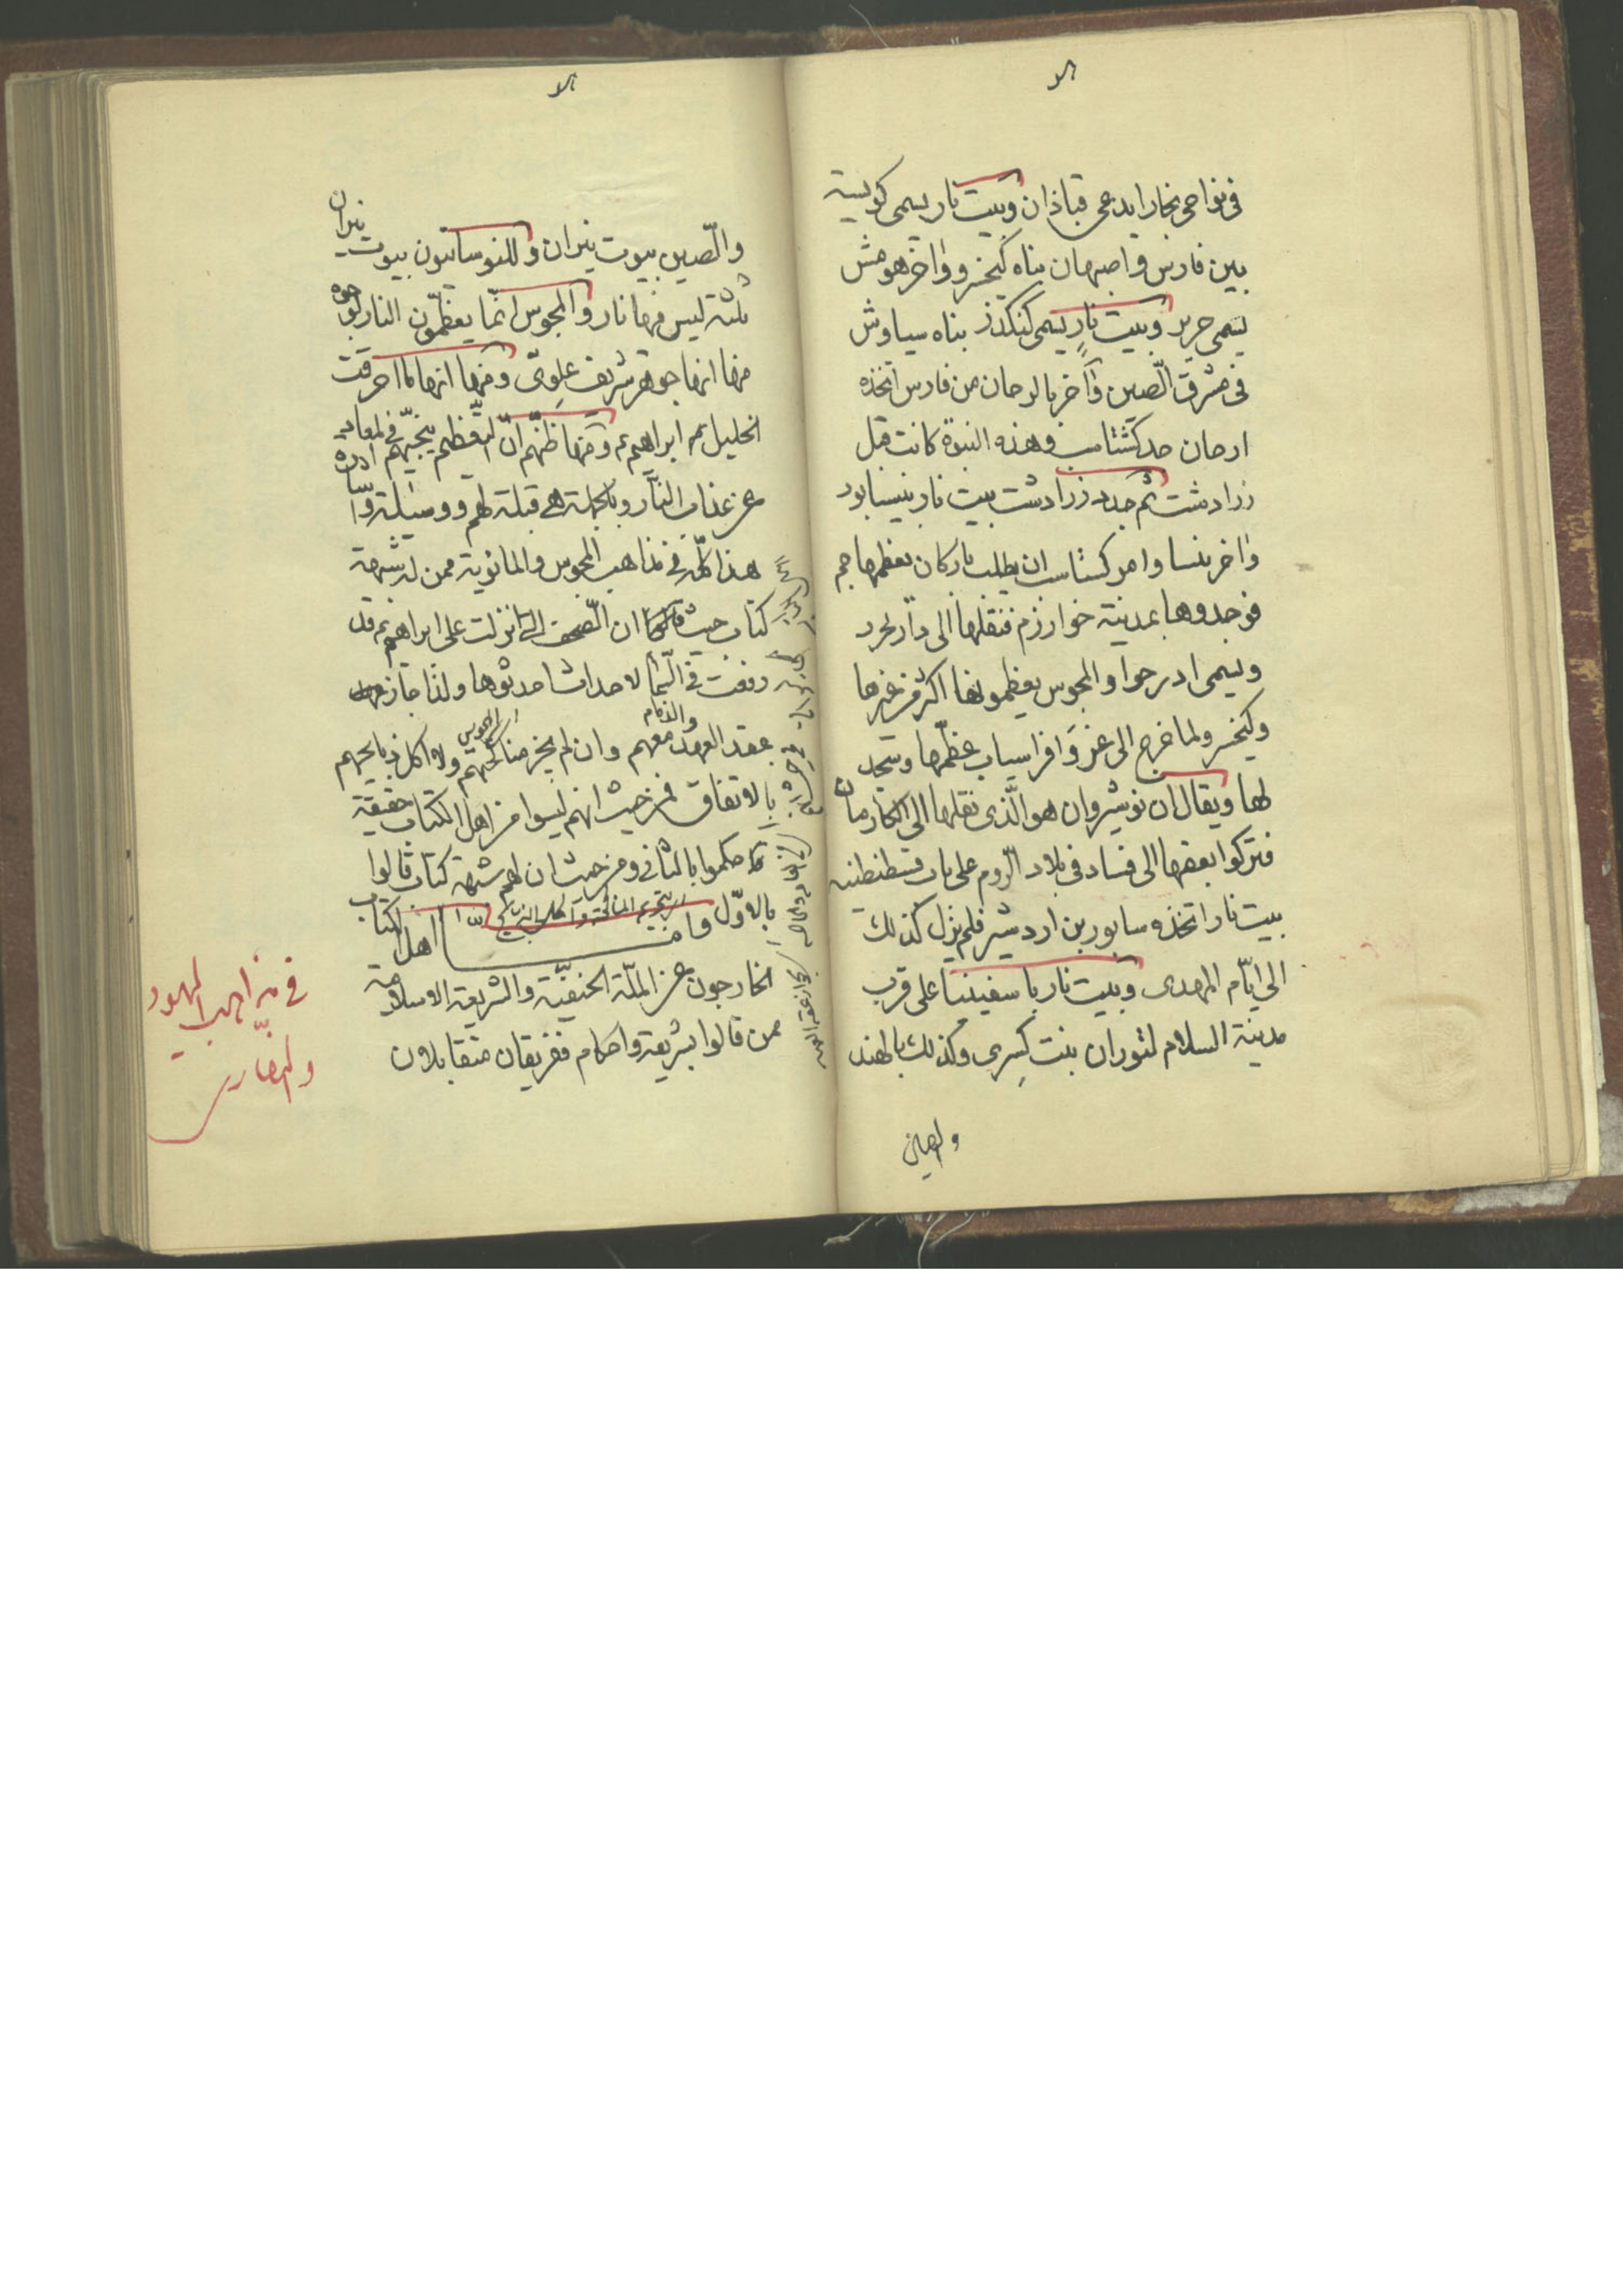 فى نواحى بخارا يدعى قباذان وبيت نار يسمى كويسه
بين فارس واصبهان بناه كيخسرو واخر هو مش
يسمى جرير وبيت نار يسمى كنكدز بناه سياوش
فى مشرق الصين وآخر بالرجان من فارس اتخذه
ارجان جد كشتاسب وهذه البيوت كانت قبل
زرادشت ثم جدد زرادشت بيت نار بنيسابور
واخر بنسا وامر كشتاسب ان يطلب نار كان يعظمها جم
فوجدوها بمدينة خوارزم فنقلها الى دار بجرد
ويسمى ادرجوا والمجوس يعظمونها اكثر من غيرها
وكيخسرو لما خرج الى غزو افراسياب عظمها وسجد
لها ويقال ان نوشيروان هو الذى نقلها الى الكارمان
فتركوا بعضها الى فسا وفى بلاد الروم على باب قسطنطنيه
بيت نار اتخذه سابور بن اردشير فلم يزل كذلك
الى ايّام المهدى وبيت نار باسفينيا على قرب
مدينة السلام لتوران بنت كسرى وكذلك بالهند
والصين
والصين بيوت نيران ولليونانيون بيوت نيران
ثلثة ليس فيها نار والمجوس انّما يعظّمون النار لوجوه
منها انها جوهر شريف علوىّ ومنها انها ما احرقت
الخليل ابراهيم ومنها ظنّهم انّ التعظيم ينجّيهم فى المعاد
عن عذاب النار وبالجملة هى قبلة لهم ووسيلة واشارة
هذا كلّه فى مذاهب المجوس والمانوية ممن له شبهة
كتاب حيث ان الصحف التى انزلت على ابراهيم قد
رفعت فى السّماء لاحداث احدثوها ولذا جاز
عقد العهد والذمام معهم وان لم يجز مناكحتهم ولا اكل ذبايحهم
بالاتفاق فمن حيث انهم ليسوا من اهل الكتاب حقيقة
حكموا بالثانى ومن حيث ان لهم شبهة كتاب قالوا
بالاوّل وامّا اهل الكتاب
الخارجون عن الملّة الحنيفيّة والشريعة الاسلامية
ممن قالوا بشريعة واحكام ففريقان متقابلان
فى مذاهب اليهود
والنصارى